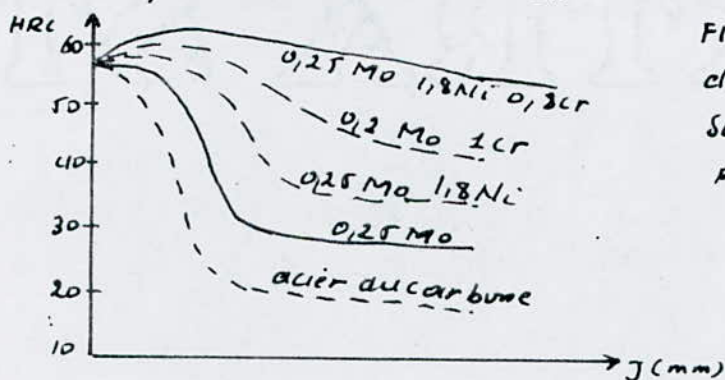 HRC
60
50
40
30
20
10
0,25 Mo 1,8Ni 0,8Cr
0,2 Mo 1Cr
0,25 Mo 1,8Ni
0,25 Mo
acier au carbone
J (mm)